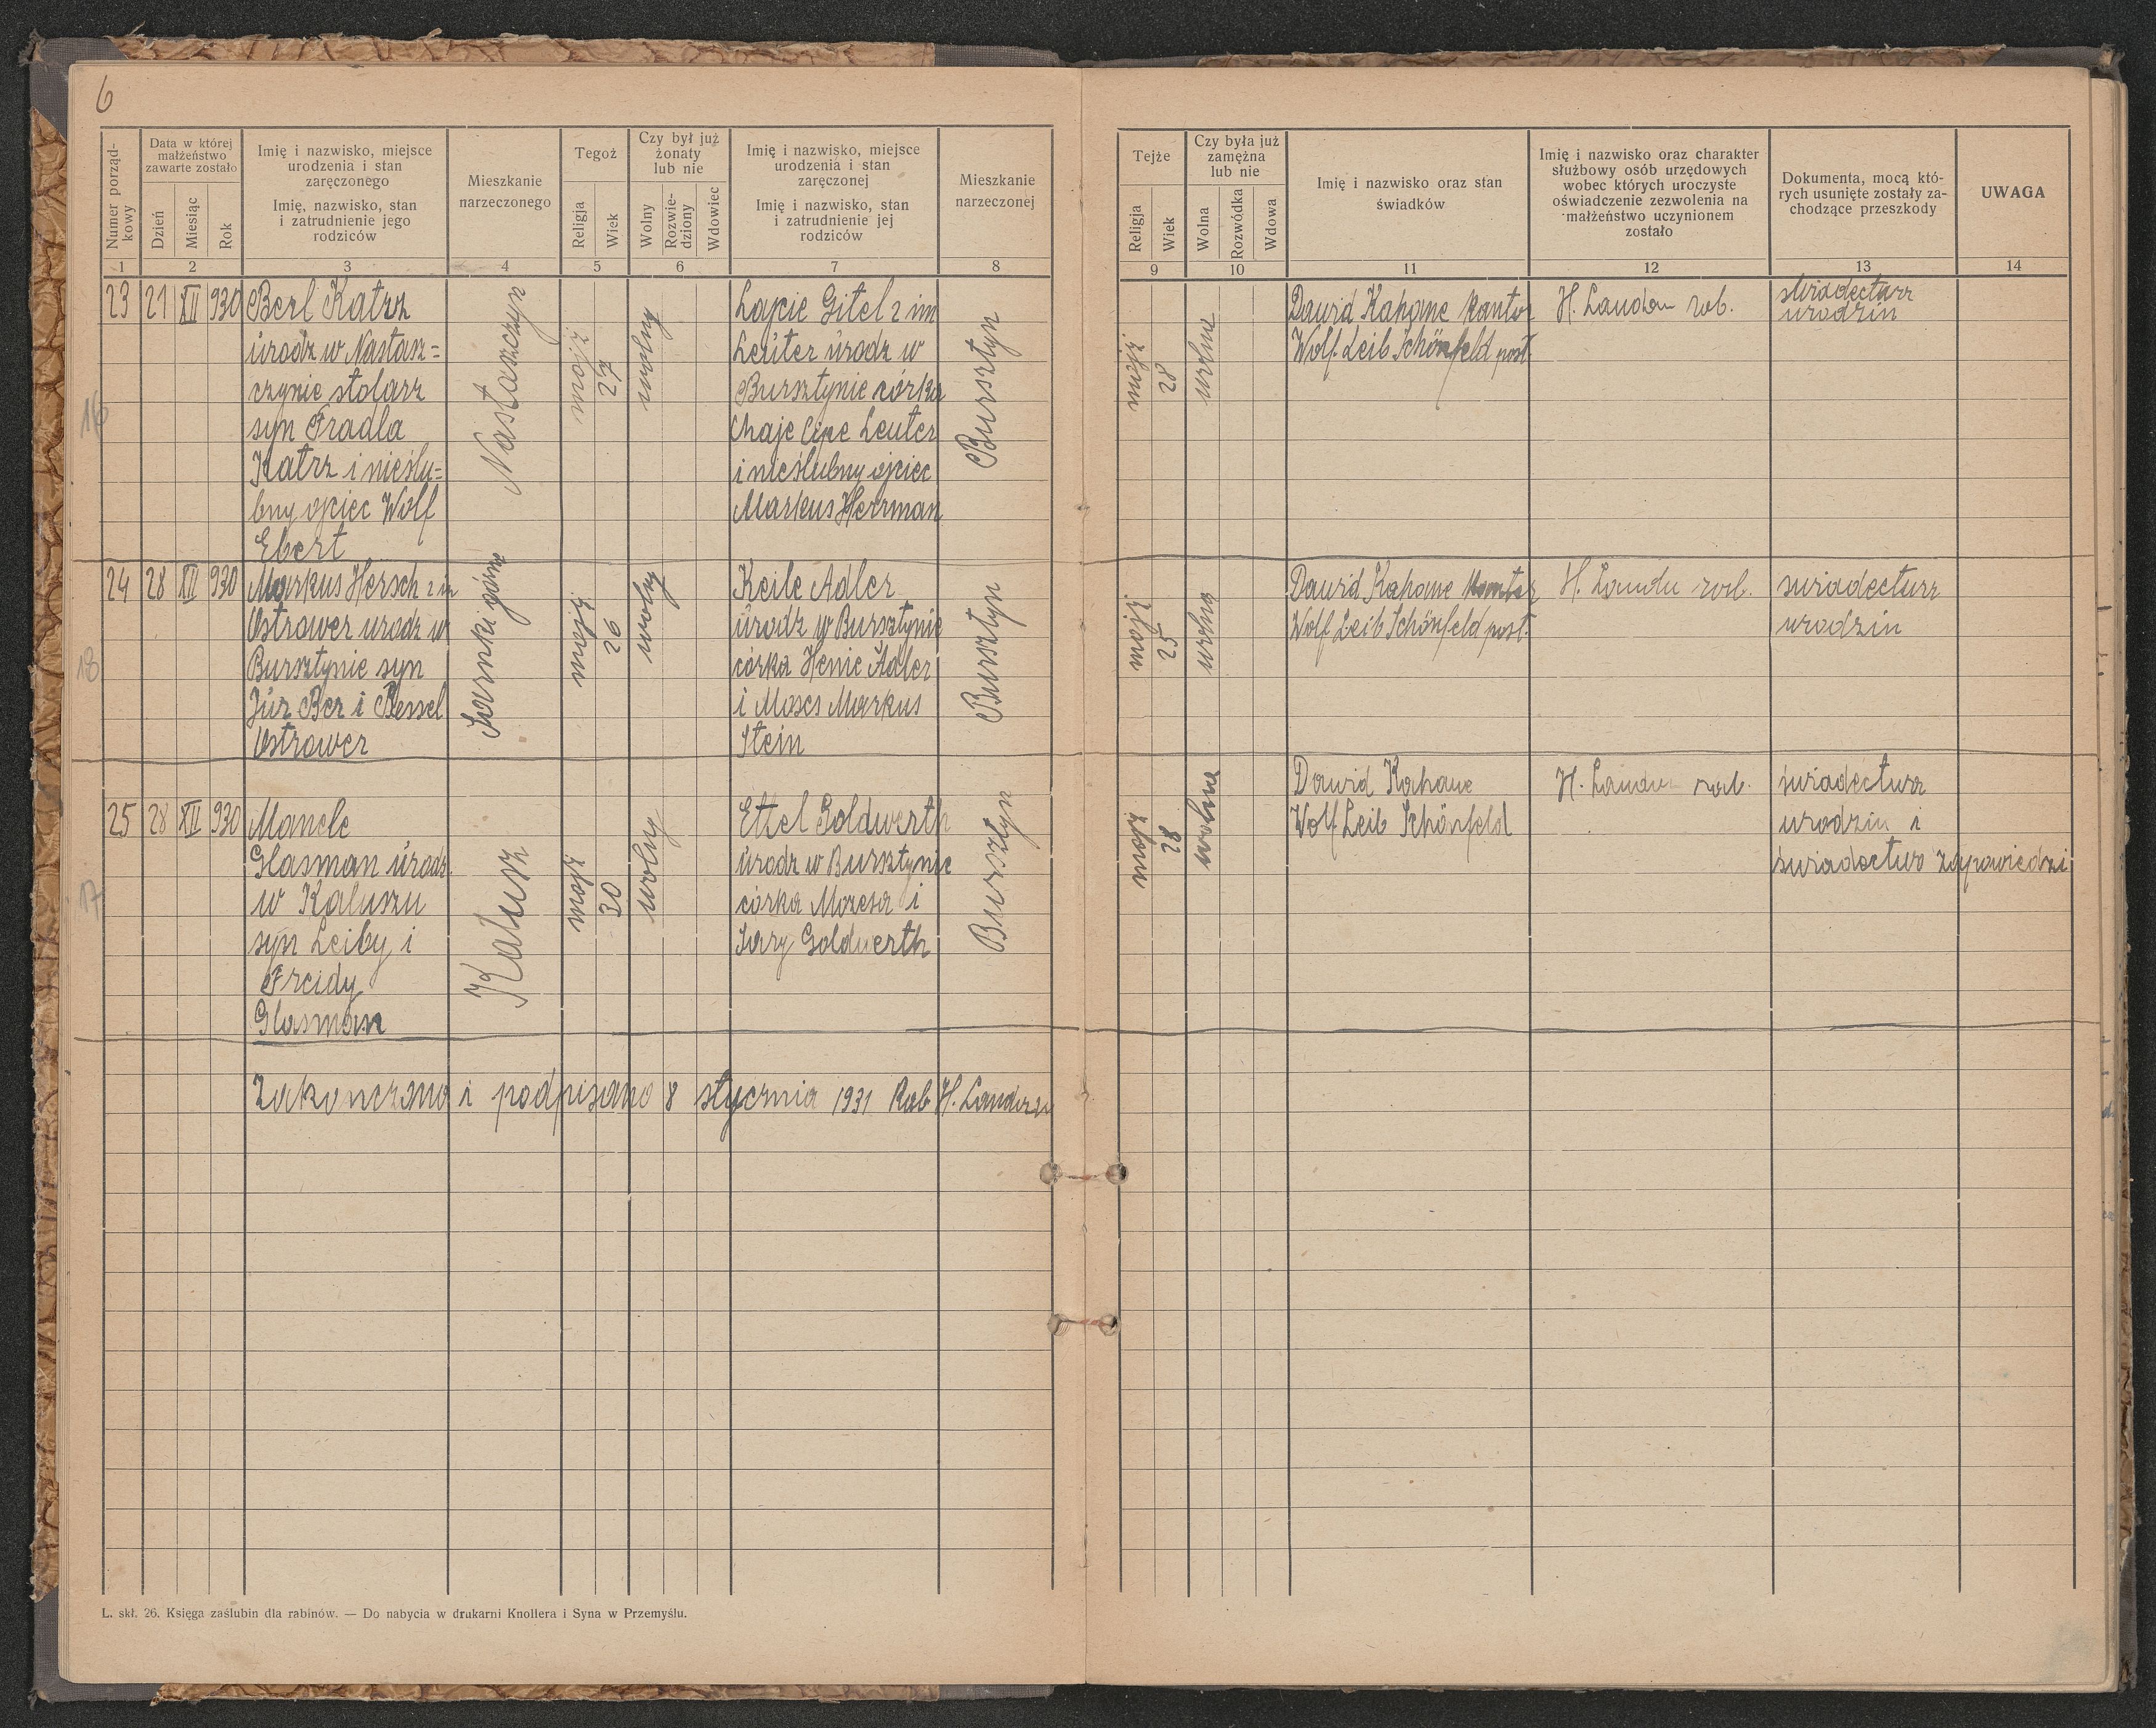 6
Numer porządkowy
Data w której małżeństwo zawarte zostało
Dzień
Miesiąc
Rok
Imię i nazwisko, miejsce urodzenia i stan zaręczonego
Imię, nazwisko, stan i zatrudnienie jego rodziców
Mieszkanie narzeczonego
Tegoż
Religja
Wiek
Czy był już żonaty lub nie
Wolny
Rozwiedziony
Wdowiec
Imię i nazwisko, miejsce urodzenia i stan zaręczonej
Imię i nazwisko, stan i zatrudnienie jej rodziców
Mieszkanie narzeczonej
1 2 3 4 5 6 7 8
Tejże
Religja
Wiek
Czy była już zamężna lub nie
Wolna
Rozwódka
Wdowa
Imię i nazwisko oraz stan świadków
Imię i nazwisko oraz charakter służbowy osób urzędowych wobec których uroczyste oświadczenie zezwolenia na małżeństwo uczynionem zostało
Dokumenta, mocą których usunięte zostały zachodzące przeszkody
UWAGA
9 10 11 12 13 14
16
23 21 XII 930
Berl Katrz
urodz w Nastasz=
czynie stolarz
syn Fradla
Katrz i nieślu=
bny ojciec Wolf
Ebert
Nastaszczyn
mojż
27
wolny
Lajcie Gitel 2 im
Leuter urodz w
Bursztynie córka
Chaje Cipe Leuter
i nieślubny ojciec
Markus Herrman
Bursztyn
mojż
28
wolna
Dawid Kahane kantor
Wolf Leib Schönfeld post.
H. Landau rab.
urodzin
18
24 28 XII 930
Markus Hersch 2 im
Ostrower urodz w
Bursztynie syn
Jür Ber i Ressel
Ostrower
mojż
26
wolny
Keile Adler
urodz w Bursztynie
córka Henie Adler
i Moses Markus
Stein
Bursztyn
mojż
25
wolna
Dawid Kahane kantor
Wolf Leib Schönfeld post.
H. Landau rab.
urodzin
17
25 28 XII 930
Manele
Glasman urodz.
w Kałuszu
syn Leiby i
Freidy
Glasman
Kałusz
mojż
30
wolny
Ettel Goldwerth
urodz w Bursztynie
córka Mozesa i
Sary Goldwerth
Bursztyn
mojż
28
wolna
Dawid Kahane
Wolf Leib Schönfeld
H. Landau rab.
urodzin i
świadectwo zapowiedzi
Zakonczono i podpisano 8 stycznia 1931 Rab H. Landau
L. skł. 26. Księga zaślubin dla rabinów. — Do nabycia w drukarni Knollera i Syna w Przemyślu.